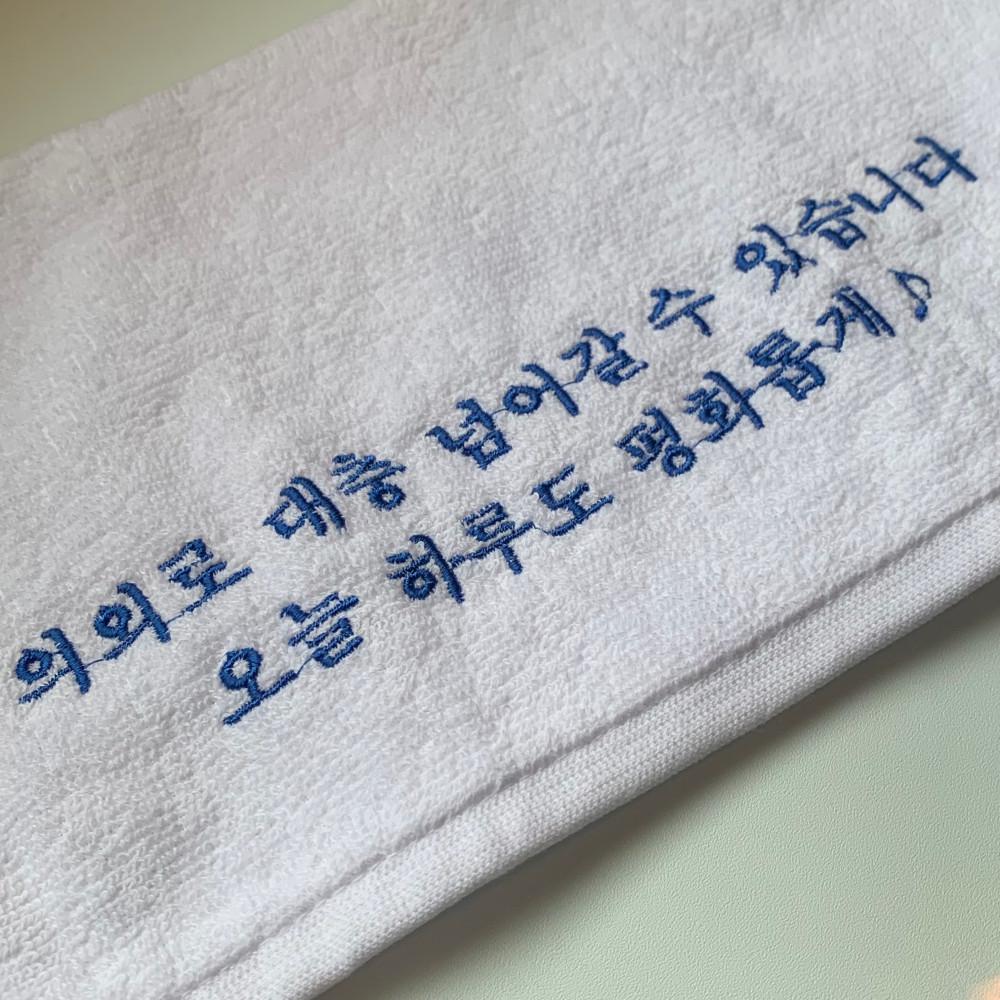 의외로 대충 넘어갈 수 있습니다
오늘 하루도 평화롭게♪